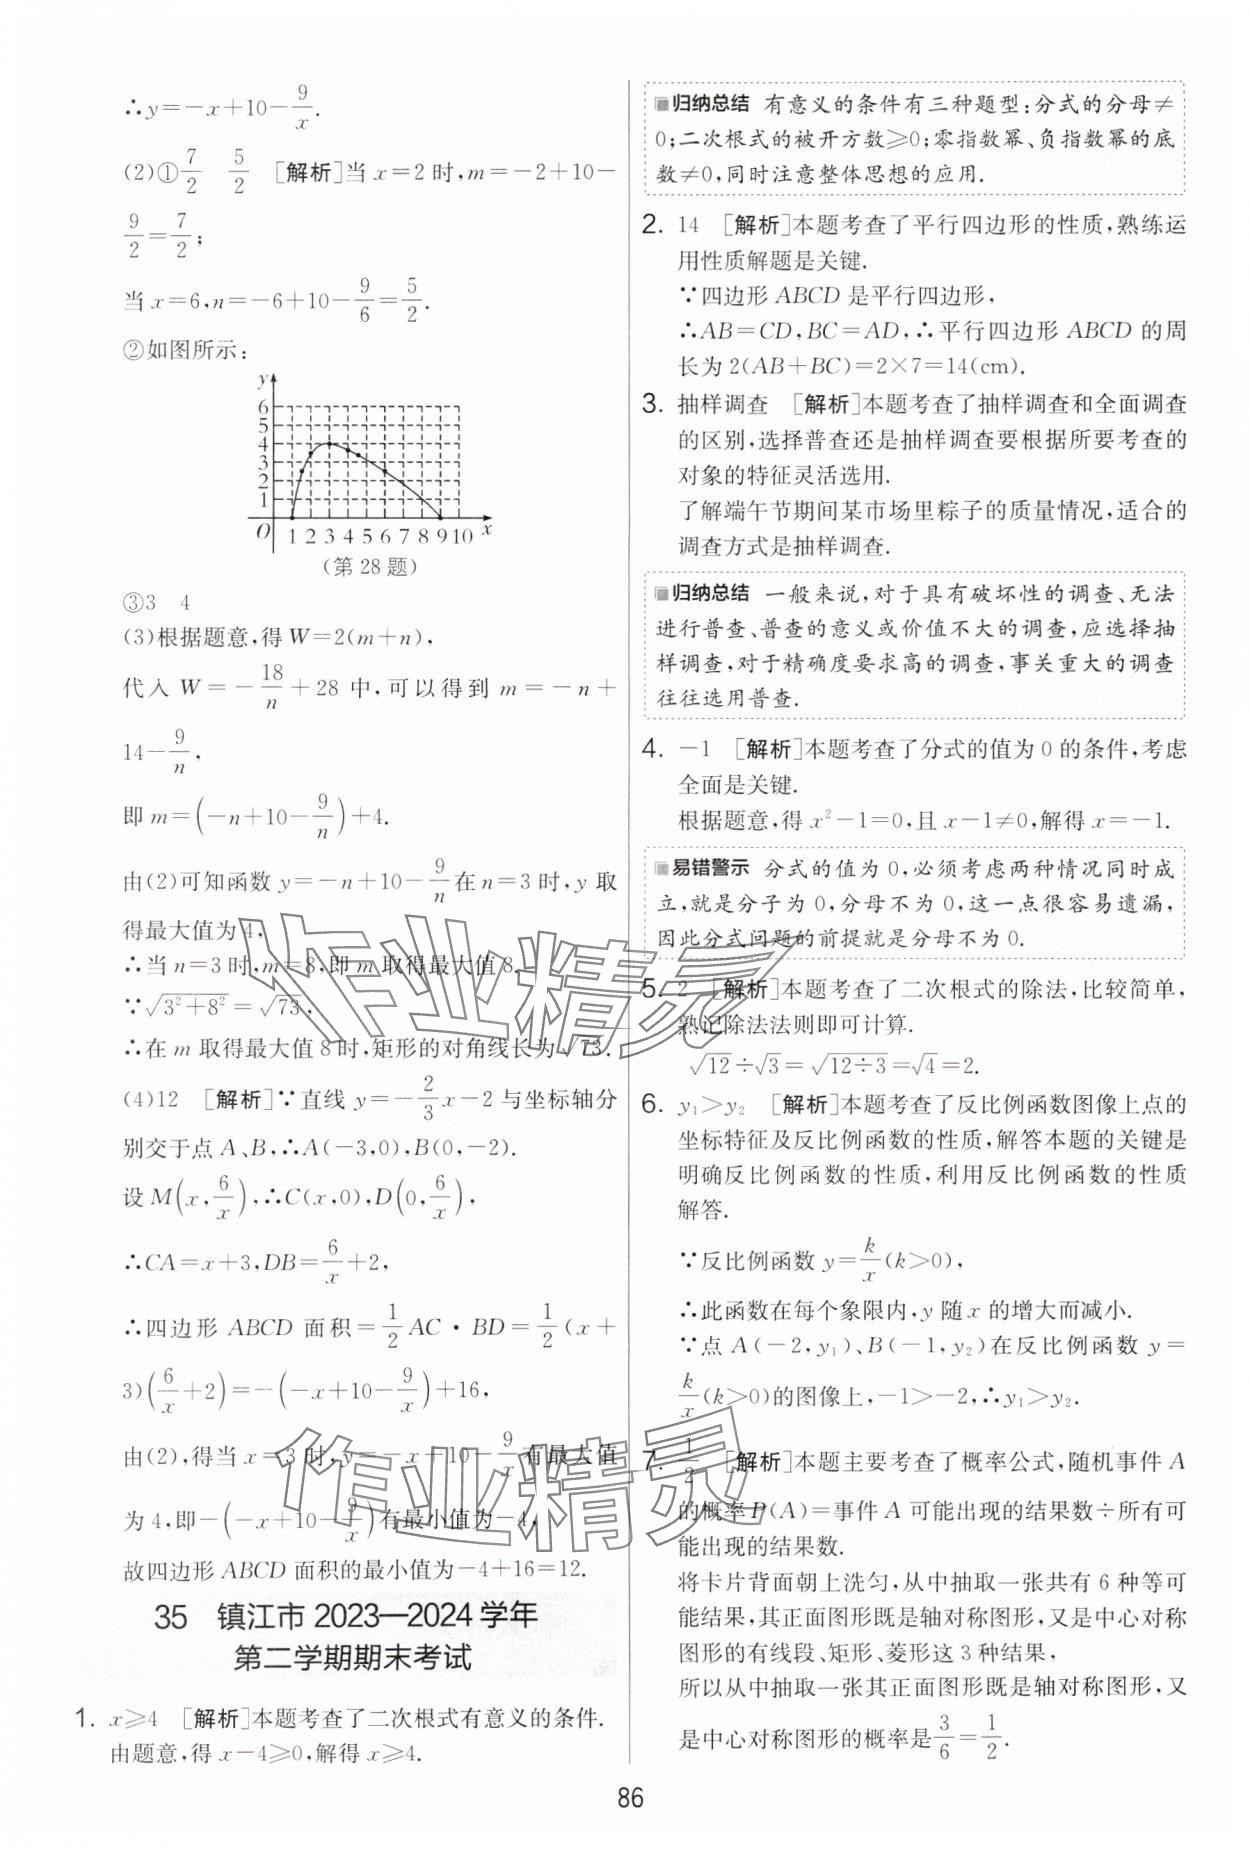 ∴y=－x+10－9/x.
(2)①7/2　5/2　[解析]当 x=2 时,m=－2+10－
9/2=7/2;
当 x=6,n=－6+10－9/6=5/2.
②如图所示:
y
6
5
4
3
2
1
O 1 2 3 4 5 6 7 8 9 10 x
(第 28 题)
③3　4
(3)根据题意,得 W=2(m+n),
代入 W=－18/n+28 中,可以得到 m=－n+
14－9/n,
即 m=(－n+10－9/n)+4.
由(2)可知函数 y=－n+10－9/n在 n=3 时,y 取
得最大值为 4,
∴当 n=3 时,m=8,即 m 取得最大值 8.
∵√(3²+8²)=√73,
∴在 m 取得最大值 8 时,矩形的对角线长为√73.
(4)12　[解析]∵直线 y=－2/3x－2 与坐标轴分
别交于点 A、B,∴A(－3,0),B(0,－2).
设 M(x,6/x),∴C(x,0),D(0,6/x),
∴CA=x+3,DB=6/x+2,
∴四边形 ABCD 面积=1/2AC·BD=1/2(x+
3)(6/x+2)=－(－x+10－9/x)+16,
由(2),得当 x=3 时,y=－x+10－9/x有最大值
为 4,即－(－x+10－9/x)有最小值为－4,
故四边形 ABCD 面积的最小值为－4+16=12.
35　镇江市 2023—2024 学年
第二学期期末考试
1. x≥4　[解析]本题考查了二次根式有意义的条件.
由题意,得 x－4≥0,解得 x≥4.
归纳总结　有意义的条件有三种题型:分式的分母≠
0;二次根式的被开方数≥0;零指数幂、负指数幂的底
数≠0,同时注意整体思想的应用.
2. 14　[解析]本题考查了平行四边形的性质,熟练运
用性质解题是关键.
∵四边形 ABCD 是平行四边形,
∴AB=CD,BC=AD,∴平行四边形 ABCD 的周
长为 2(AB+BC)=2×7=14(cm).
3. 抽样调查　[解析]本题考查了抽样调查和全面调查
的区别,选择普查还是抽样调查要根据所要考查的
对象的特征灵活选用.
了解端午节期间某市场里粽子的质量情况,适合的
调查方式是抽样调查.
归纳总结　一般来说,对于具有破坏性的调查、无法
进行普查、普查的意义或价值不大的调查,应选择抽
样调查,对于精确度要求高的调查,事关重大的调查
往往选用普查.
4. －1　[解析]本题考查了分式的值为 0 的条件,考虑
全面是关键.
根据题意,得 x²－1=0,且 x－1≠0,解得 x=－1.
易错警示　分式的值为 0,必须考虑两种情况同时成
立,就是分子为 0,分母不为 0,这一点很容易遗漏,
因此分式问题的前提就是分母不为 0.
5. 2　[解析]本题考查了二次根式的除法,比较简单,
熟记除法法则即可计算.
√12÷√3=√(12÷3)=√4=2.
6. y₁>y₂　[解析]本题考查了反比例函数图像上点的
坐标特征及反比例函数的性质,解答本题的关键是
明确反比例函数的性质,利用反比例函数的性质
解答.
∵反比例函数 y=k/x(k>0),
∴此函数在每个象限内,y 随 x 的增大而减小.
∵点 A(－2,y₁)、B(－1,y₂)在反比例函数 y=
k/x(k>0)的图像上,－1>－2,∴y₁>y₂.
7. 1/2　[解析]本题主要考查了概率公式,随机事件 A
的概率 P(A)=事件 A 可能出现的结果数÷所有可
能出现的结果数.
将卡片背面朝上洗匀,从中抽取一张共有 6 种等可
能结果,其正面图形既是轴对称图形,又是中心对称
图形的有线段、矩形、菱形这 3 种结果,
所以从中抽取一张其正面图形既是轴对称图形,又
是中心对称图形的概率是3/6=1/2.
86
作业精灵
作业精灵